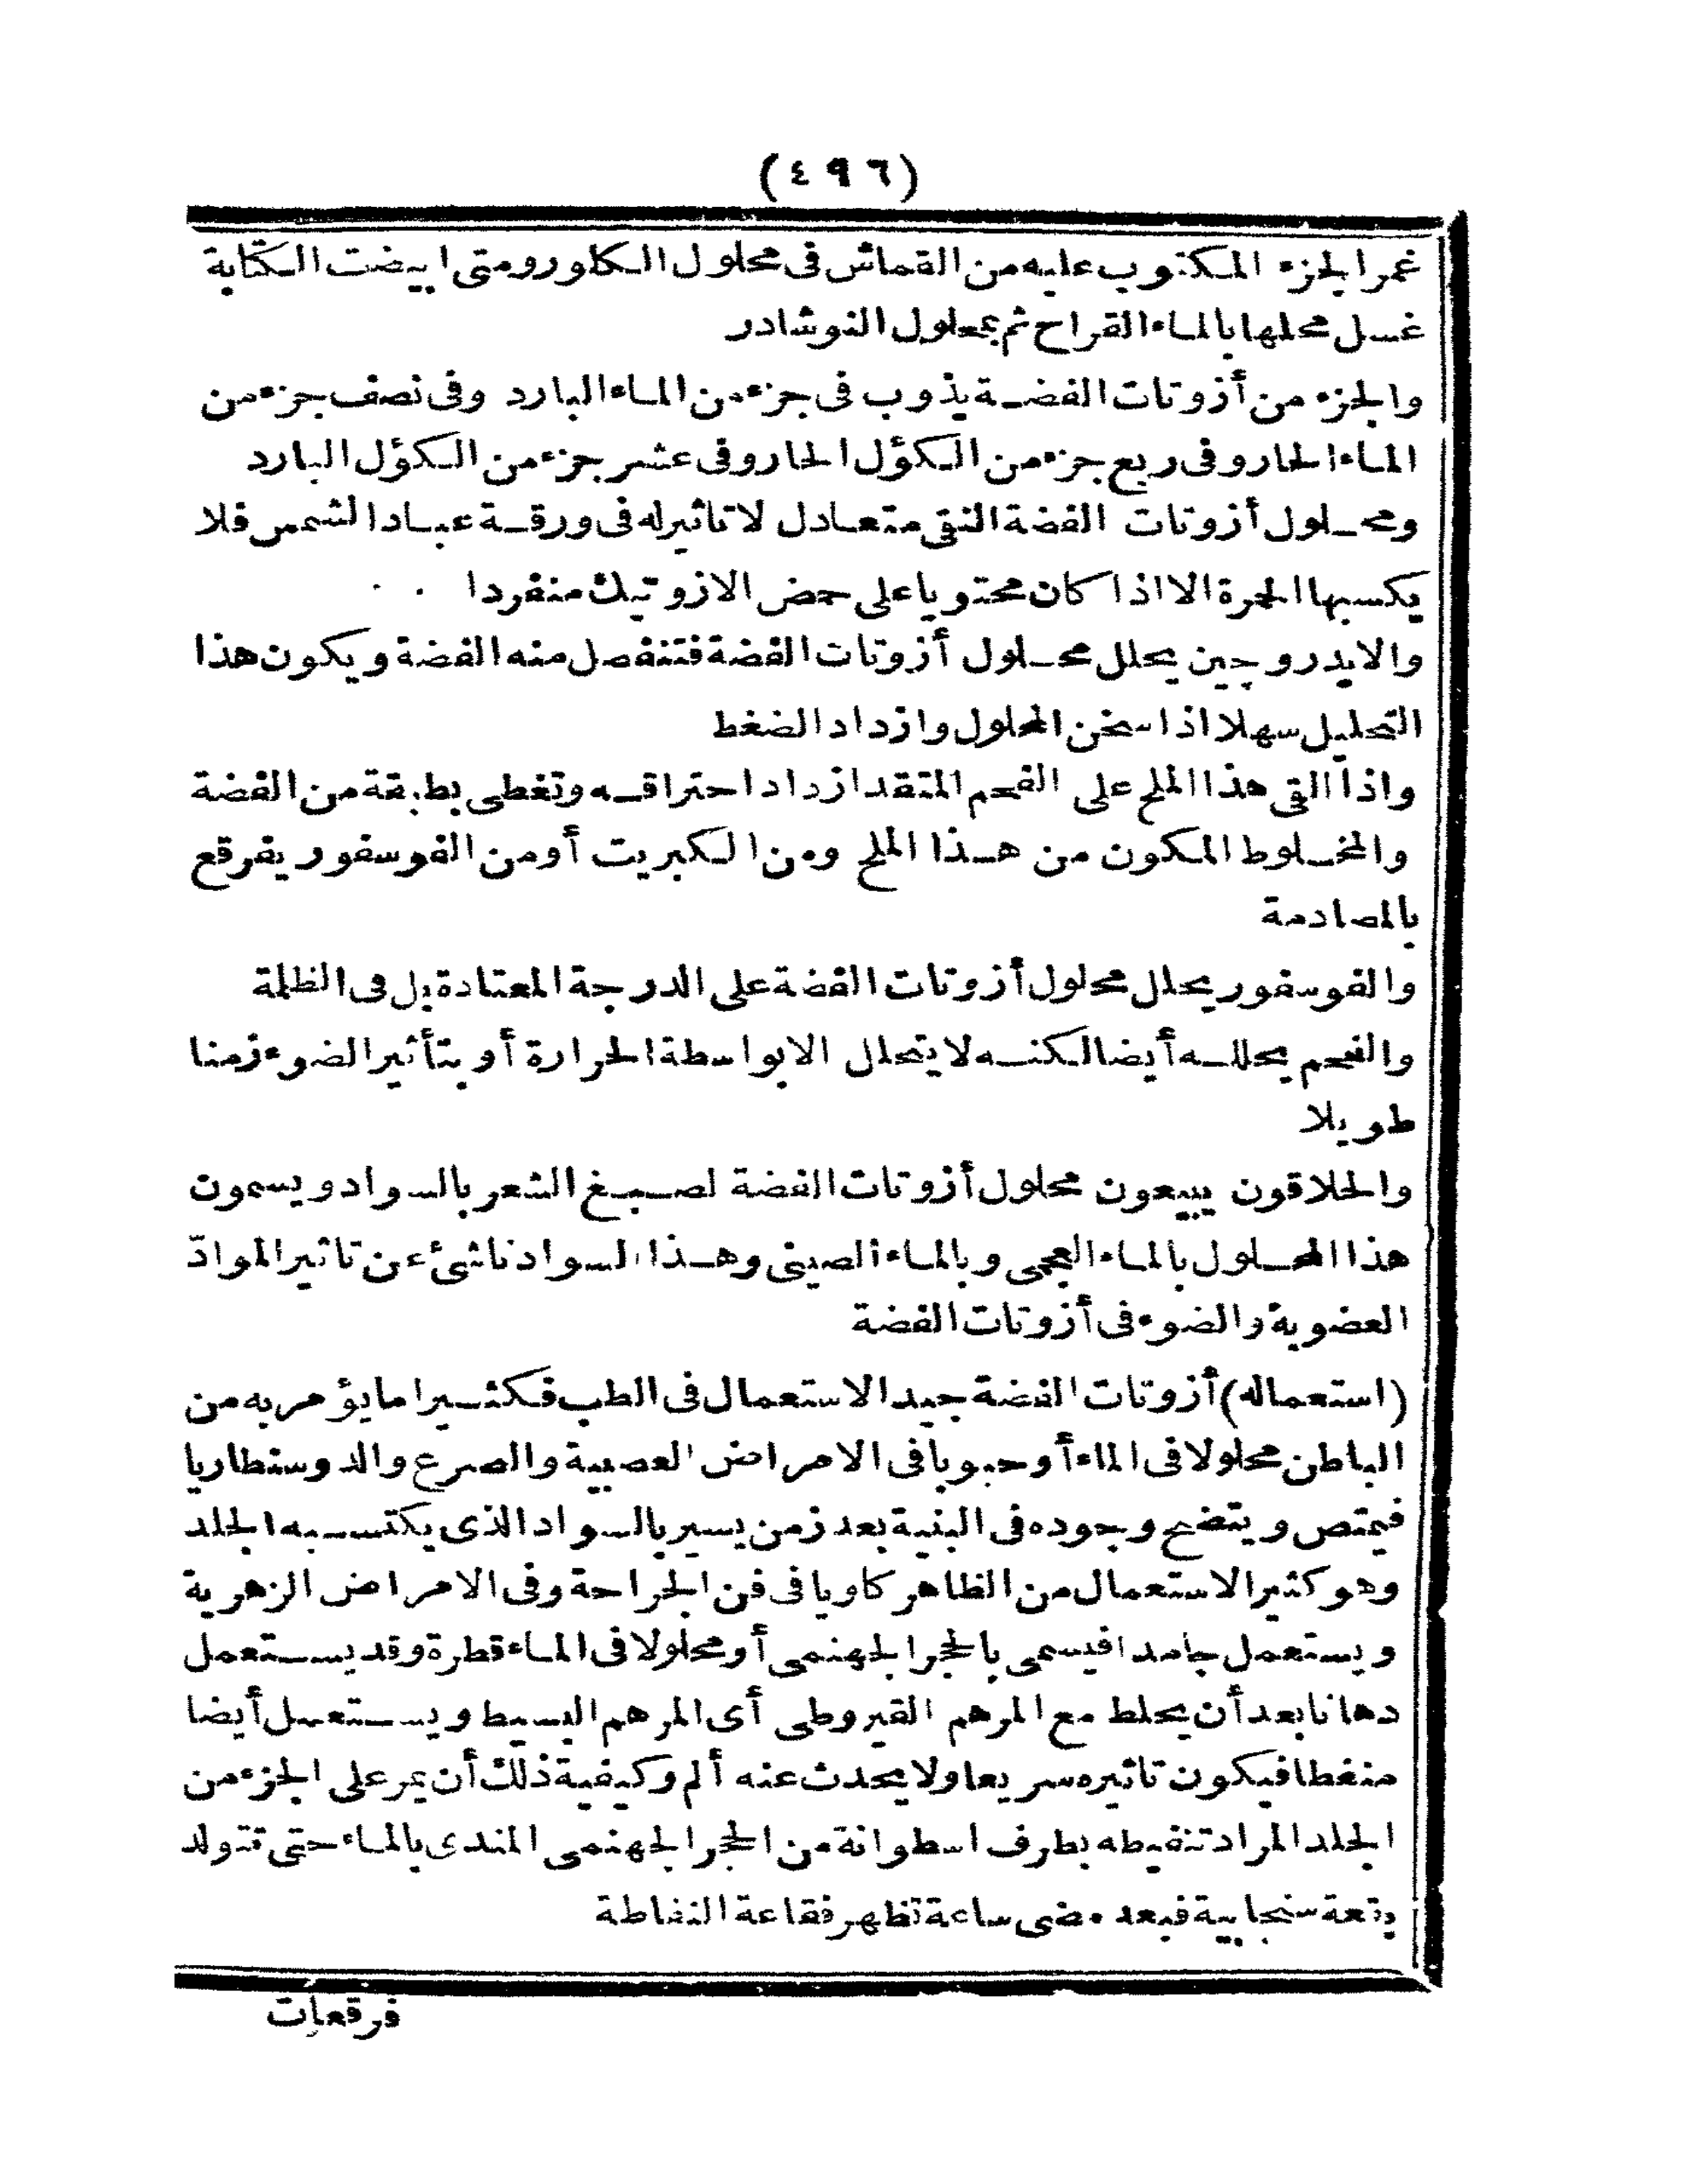 (٤٩٦)
غمر الجزء المكتوب عليه من القماش فى محلول الكلورومتى ابيضت الكتابة
غسل محلها بالماء القراح ثم بمحلول النوشادر
والجزء من أزوتات الفضة يذوب فى جزء من الماء البارد وفى نصف جزء من
الماء الحار وفى ربع جزء من الكؤل الحار وفى عشر جزء من الكؤل البارد
ومحلول أزوتات الفضة النقى متعادل لا تاثير له فى ورقة عباد الشمس فلا
يكسبها الحمرة الا اذا كان محتويا على حمض الازوتيك منفردا
والايدروچين يحلل محلول أزوتات الفضة فتنفصل منه الفضة ويكون هذا
التحليل سهلا اذا سخن المحلول وازداد الضغط
واذا القى هذا الملح على الفحم المتقد ازداد احتراقه وتغطى بطبقة من الفضة
والمخلوط المكون من هذا الملح ومن الكبريت أومن الفوسفور يفرقع
بالمصادمة
والفوسفور يحلل محلول أزوتات الفضة على الدرجة المعتادة بل فى الظلمة
والفحم يحلله أيضا لكنه لا يتحلل الا بواسطة الحرارة أو بتأثير الضوء زمنا
طويلا
والحلاقون يبيعون محلول أزوتات الفضة لصبغ الشعر بالسواد ويسمون
هذا المحلول بالماء العجمى وبالماء الصينى وهذا السواد ناشئ عن تاثير الموادّ
العضوية والضوء فى أزوتات الفضة
(استعماله) أزوتات الفضة جيد الاستعمال فى الطب فكثيرا ما يؤمر به من
الباطن محلولا فى الماء أو حبوبا فى الامراض العصبية والصرع والدوسنطاريا
فيمتص ويتضح وجوده فى البنية بعد زمن يسير بالسواد الذى يكتسبه الجلد
وهو كثير الاستعمال من الظاهر كاويا فى فن الجراحة وفى الامراض الزهرية
ويستعمل جامدا فيسمى بالحجر الجهنمى أو محلولا فى الماء قطرة وقد يستعمل
دهانا بعد أن يخلط مع المرهم القيروطى أى المرهم البسيط ويستعمل أيضا
منفطا فيكون تاثيره سريعا ولا يحدث عنه ألم وكيفية ذلك أن يمر على الجزء من
الجلد المراد تنفيطه بطرف اسطوانة من الحجر الجهنمى المندى بالماء حتى تتولد
بقعة سنجابية فبعد مضى ساعة تظهر فقاعة النفاطة
فرقعات